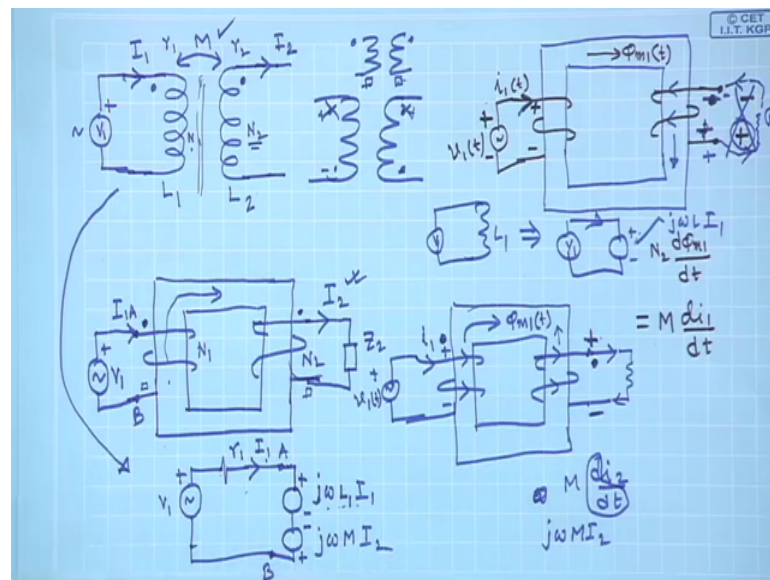 © CET
I.I.T. KGP
I₁ r₁ M ✓ r₂ I₂
+
~ V₁
N₁ N₂
L₁ L₂
+ +
- -
→ Φm₁(t)
i₁(t)
+ + -
v₁(t)
- - +
V L₁ ⇒ V₁ + - jωL I₁
N₂ dΦm₁/dt
= M di₁/dt
I₁ A
I₂
+
~ V₁ N₁ N₂ Z₂
B
i₁ + Φm₁(t) +
+
v₁(t)
- -
r₁ I₁ A
+ +
V₁ ~ jωL₁I₁
-
-
jωMI₂
+
B
M di₂/dt
jωMI₂